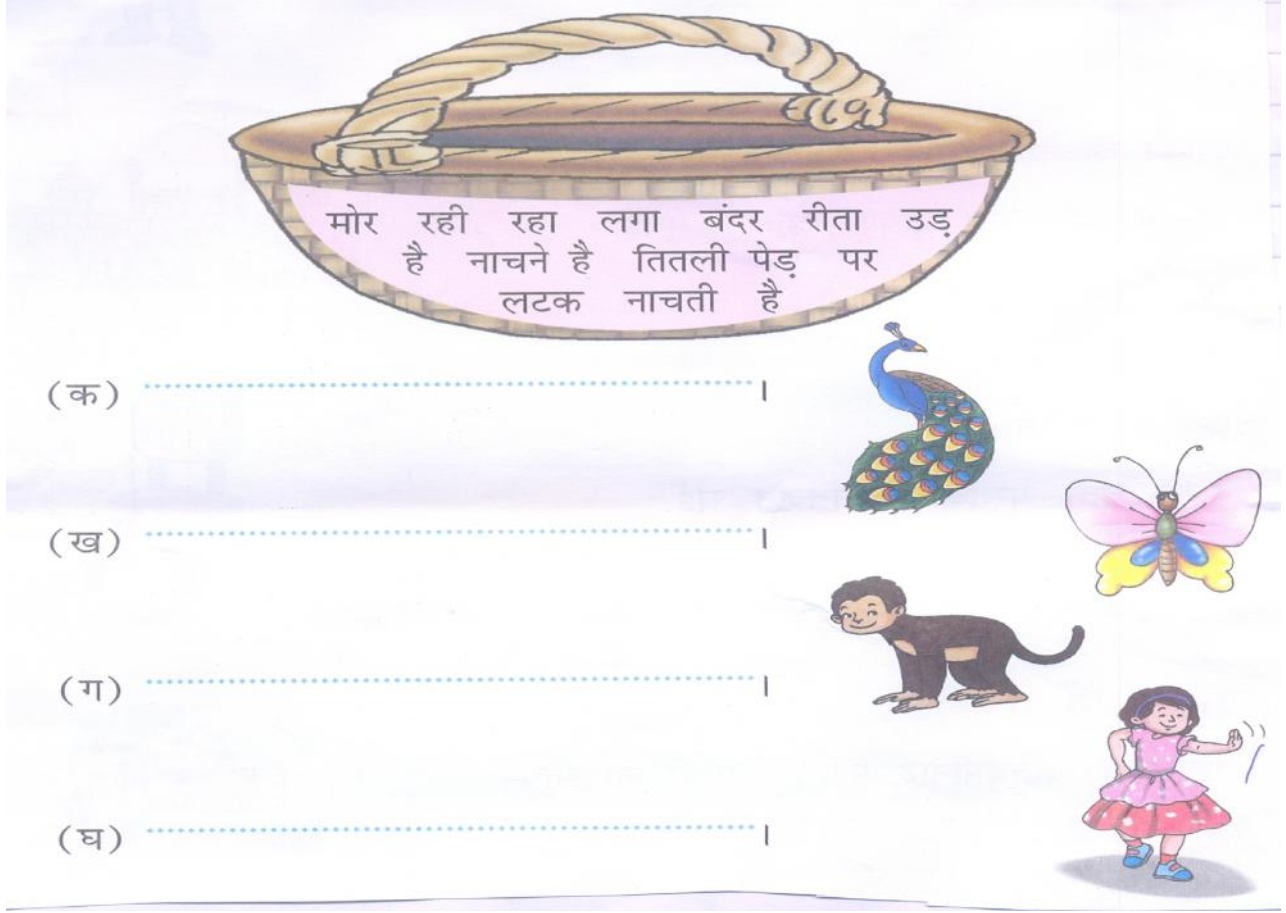 मोर रही रहा लगा बंदर रीता उड़
है नाचने है तितली पेड़ पर
लटक नाचती है
(क) ।
(ख) ।
(ग) ।
(घ) ।